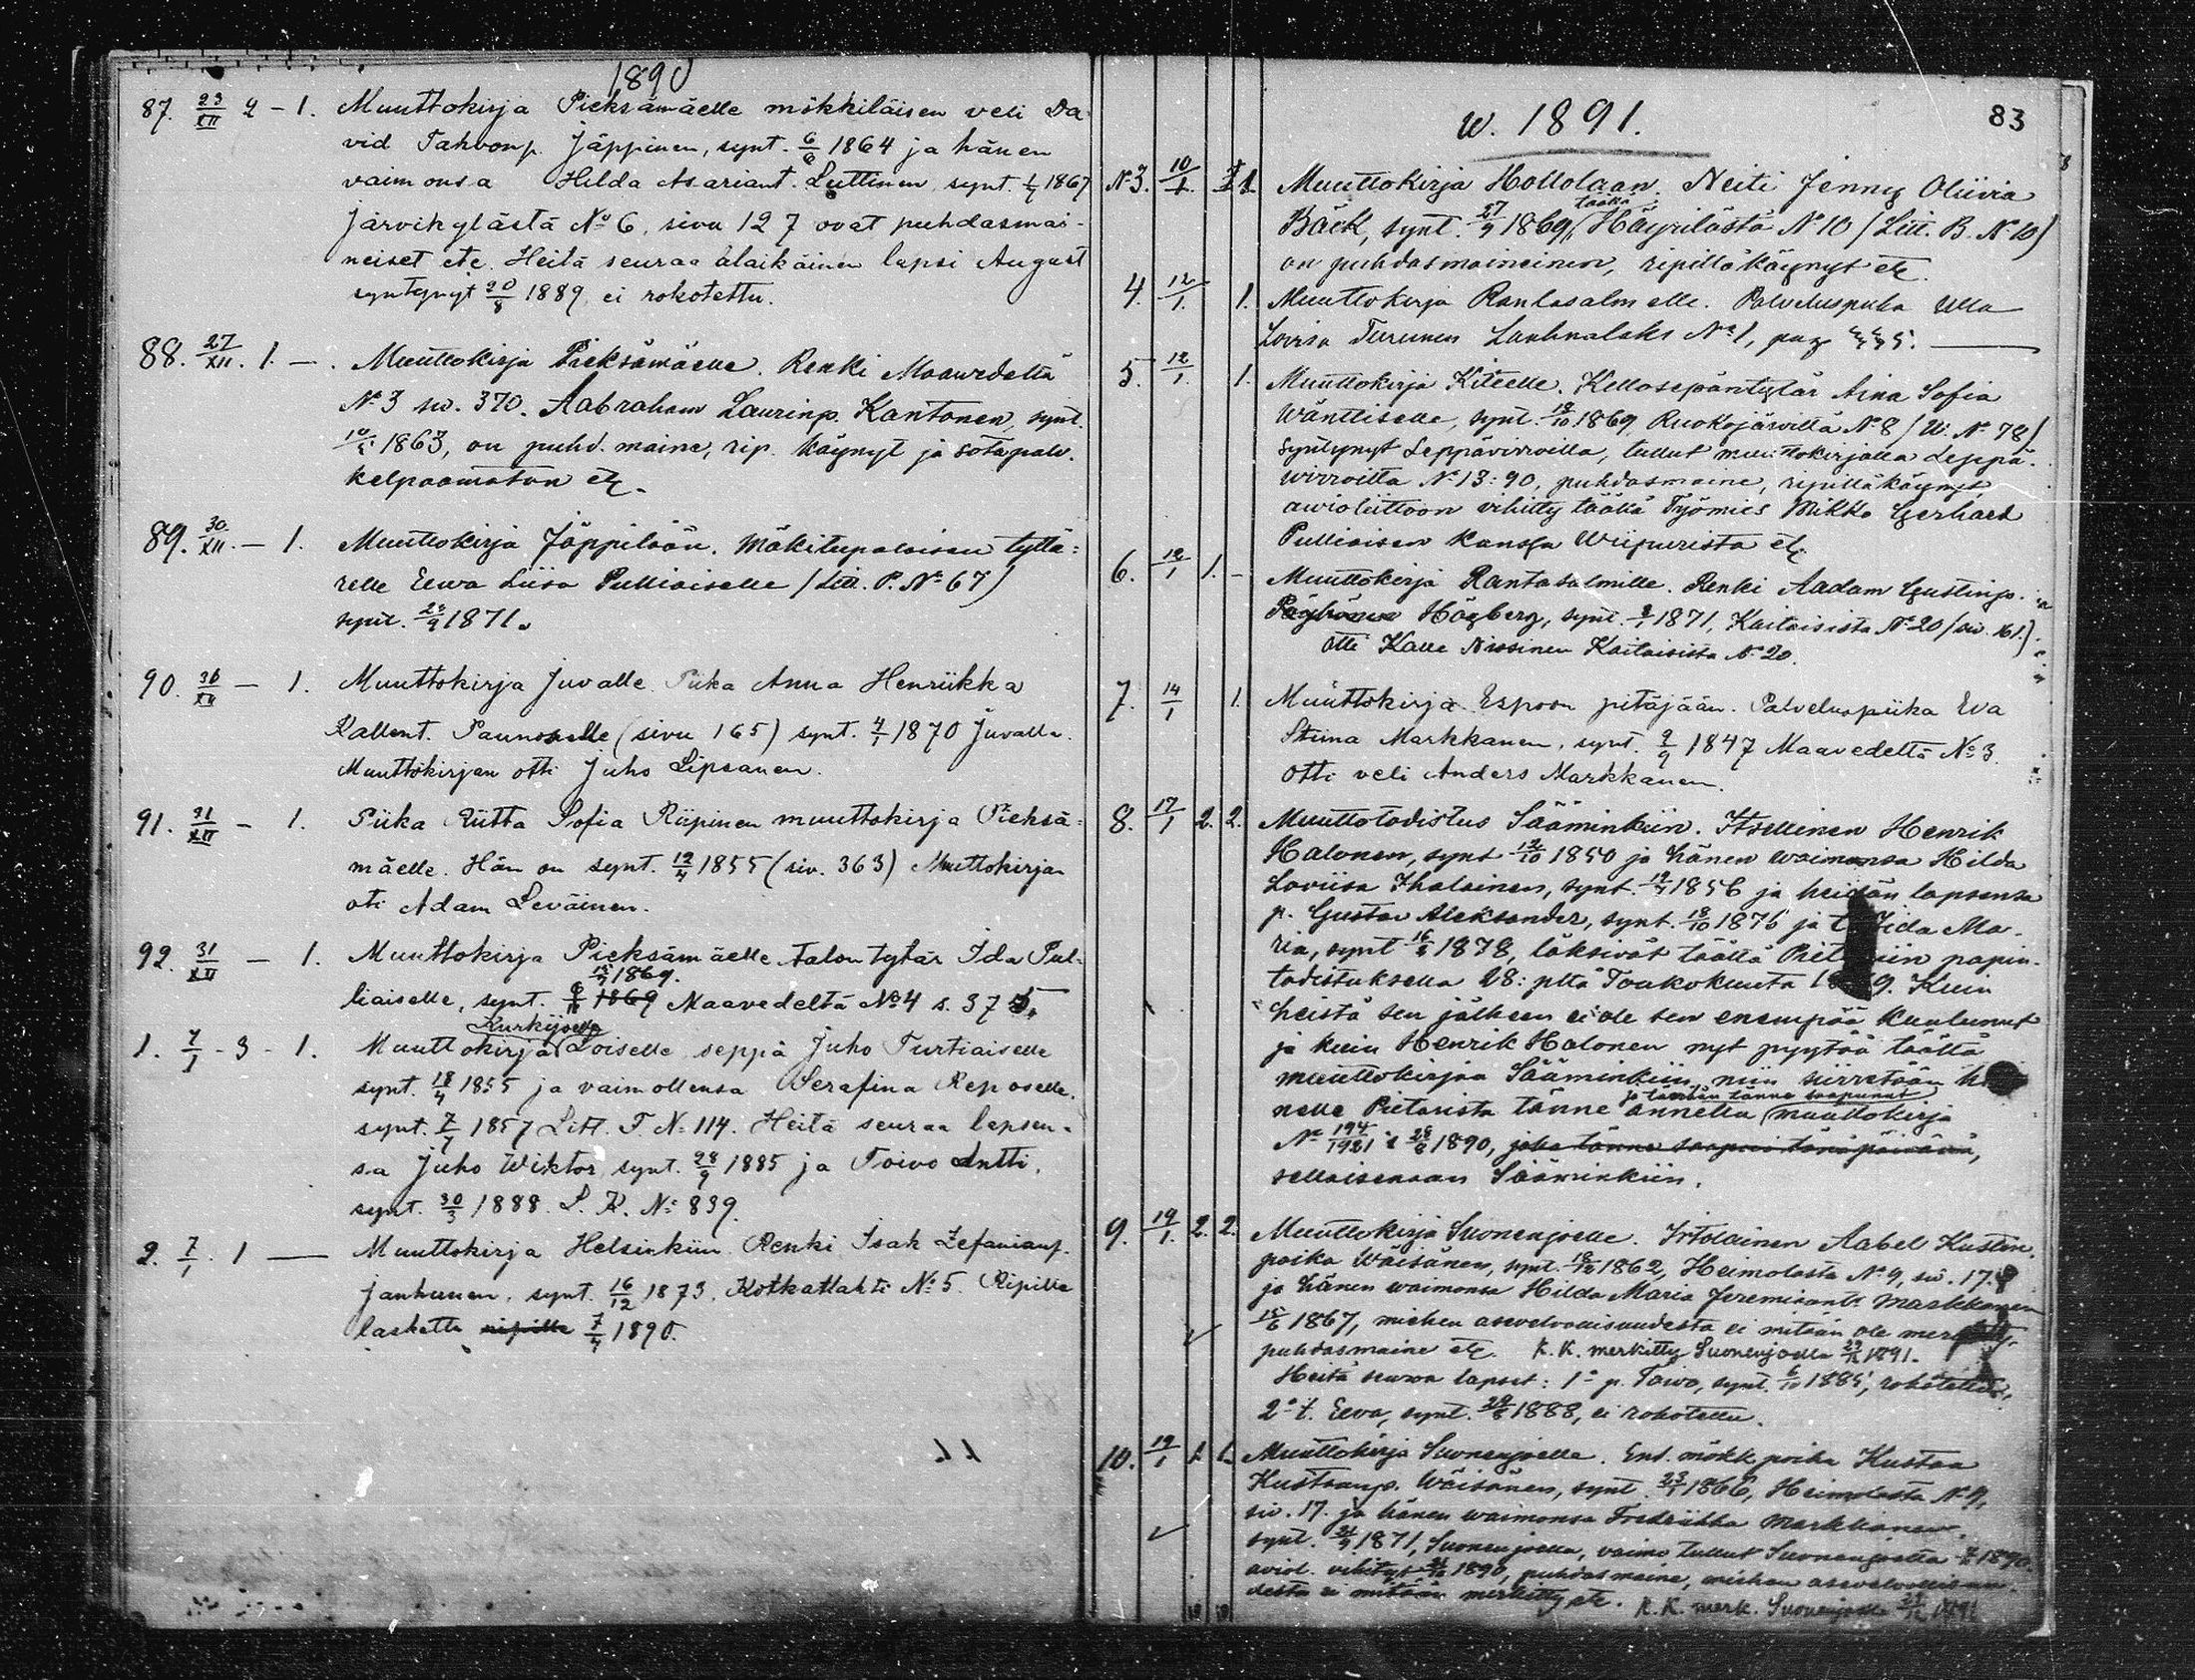 1890
87. 23/XII 2 - 1. Muuttokirja Pieksämäelle mökkiläisen veli Da-
vid Tahvonp. Jäppinen, synt. 6/6 1864 ja hänen
vaimonsa Hilda Asariant. Luttinen synt. 1/7 1867
Järvikylästä No 6, sivu 127 ovat puhdasmai-
neiset etc. Heitä seuraa alaikäinen lapsi August
syntynyt 20/8 1889, ei rokotettu.
88. 27/XII. 1. - . Muuttokirja Pieksämäelle. Renki Maavedeltä
No 3 siv. 370. Aabraham Laurinp. Kantonen, synt.
1863, on puhd. maine, rip. käynyt ja sotapalv.
kelpaamaton etc.
89. 30/XII. - 1. Muuttokirja Jäppilään. Mäkitupalaisen tyttä=
relle Eewa Liisa Pulliaiselle (Litt. P. No 67)
synt. 28/9 1871.
90. 30/XII - 1. Muuttokirja Juvalle Piika Anna Henriikka
Kallent. Paunoselle (sivu 165) synt. 4/1 1870 Juvalla.
Muuttokirjan otti Juho Lipsanen.
91. 31/XII - 1. Piika Riitta Sofia Riipinen muuttokirja Pieksä=
mäelle. Hän on synt. 12/4 1855 (siv. 363) Muuttokirjan
oti Adam Leväinen.
92. 31/XII - 1. Muuttokirja Pieksämäelle talon tytär Ida Pul-
1869.
liaiselle, synt. 1869 Maavedeltä No 4 s. 375.
Kurkijoelle
1. 7/1 - 3 - 1. Muuttokirja Loiselle seppä Juho Turtiaiselle
synt. 18/4 1855 ja vaimollensa Serafina Reposelle.
synt. 7/7 1857 Litt. T. No 114. Heitä seuraa lapsen-
sa Juho Wiktor synt. 28/9 1885 ja Toivo Antti,
synt. 30/3 1888. L. K. No 839.
2. 7/1. 1 — Muuttokirja Helsinkiin Renki Isak Zefanianp.
Janhunen, synt. 16/12 1873, Kotkatlahti No 5. Ripille
laskettu ripille 7/7 1890.
w. 1891. 83
No 3. 10/1. 1. Muuttokirja Hollolaan. Neiti Jenny Oliivia
täältä
Bäck, synt. 27/7 1869, Häyrilästä No 10 (Litt. B. No 10)
on puhdasmaineinen, ripillä käynyt etc.
4. 12/1. 1. Muuttokirja Rantasalmelle. Palveluspiika Ulla
Lovisa Turunen Lauhnalaks No 1, pag 445.
5. 12/1. 1. Muuttokirja Kiteelle. Kellosepäntytär Aina Sofia
Wänttiselle, synt. 1869 Ruokojärvillä No 8 (W. No 78)
syntynyt Leppävirroilla, tullut muuttokirjalla Leppä-
wirroilta No 13:90, puhdasmaine, ripilläkäynyt,
awioliittoon vihitty täällä Työmies Mikko Gerhard
Pulliaisen kanssa Wiipurista etc.
6. 12/1 1. - Muuttokirja Rantasalmille. Renki Aadam Gustinp.
Högberg, synt. 1871, Kaitaisista No 20 (siv. 161.)
otti Kalle Nissinen Kaitaisista No 20.
7. 14/1 1. Muuttokirja Espoon pitäjään. Palveluspiika Eva
Stiina Markkanen, synt. 9/9 1847 Maavedeltä No 3.
otti veli Anders Markkanen.
8. 17/1 2. 2. Muuttotodistus Sääminkiin. Itsellinen Henrik
Halonen, synt 12/10 1850 ja hänen waimonsa Hilda
Loviisa Ihalainen, synt. 1856 ja heidän lapsensa
p. Gustav Aleksander, synt. 18/10 1876 ja t. Iida Ma-
ria, synt 1878, läksivät täältä papin-
todistuksella 28: pltä Toukokuuta Kuin
heistä sen jälkeen ei ole sen enempää kuulunut
ja kuin Henrik Halonen nyt pyytää täältä
muuttokirjaa Sääminkiin, niin siirretään
ja tänne saapunut
nelle Pietarista tänne annettu muuttokirja
No 194/1921 1890, joka tänne saapui tänäpäivänä,
sellaisenaan Sääminkiin.
9. 19/1. 2. 2. Muuttokirja Suonenjoelle. Irtolainen Aabel Kustin-
poika Wäisänen, synt. 1862, Heimolasta No 9, siv. 17.
ja hänen waimonsa Hilda Maria Jeremiaant. Markkanen
15/6 1867, miehen asevelvollisuudesta ei mitään ole
puhdasmaine etc. K. K. merkitty Suonenjoella 1891.
Heitä seuraa lapset: 1o p. Toivo, synt. 1885, rokotettu,
2o t. Eeva, synt. 1888, ei rokotettu.
10. 19/1 1. 1. Muuttokirja Suonenjoelle. Ent. mökk. poika Kustaa
Kustaanp. Wäisänen, synt. 23/1 1866, Heimolasta No 9,
siv. 17. ja hänen waimonsa Fredriikka Markkanen,
synt. 1871, Suonenjoella, vaimo tullut Suonenjoelta 1890
aviol. vihityt 1890, puhdasmaine, miehen asevelvollisuu-
desta ei mitään merkitty etc. K. K. merk. Suonenjoella 1891